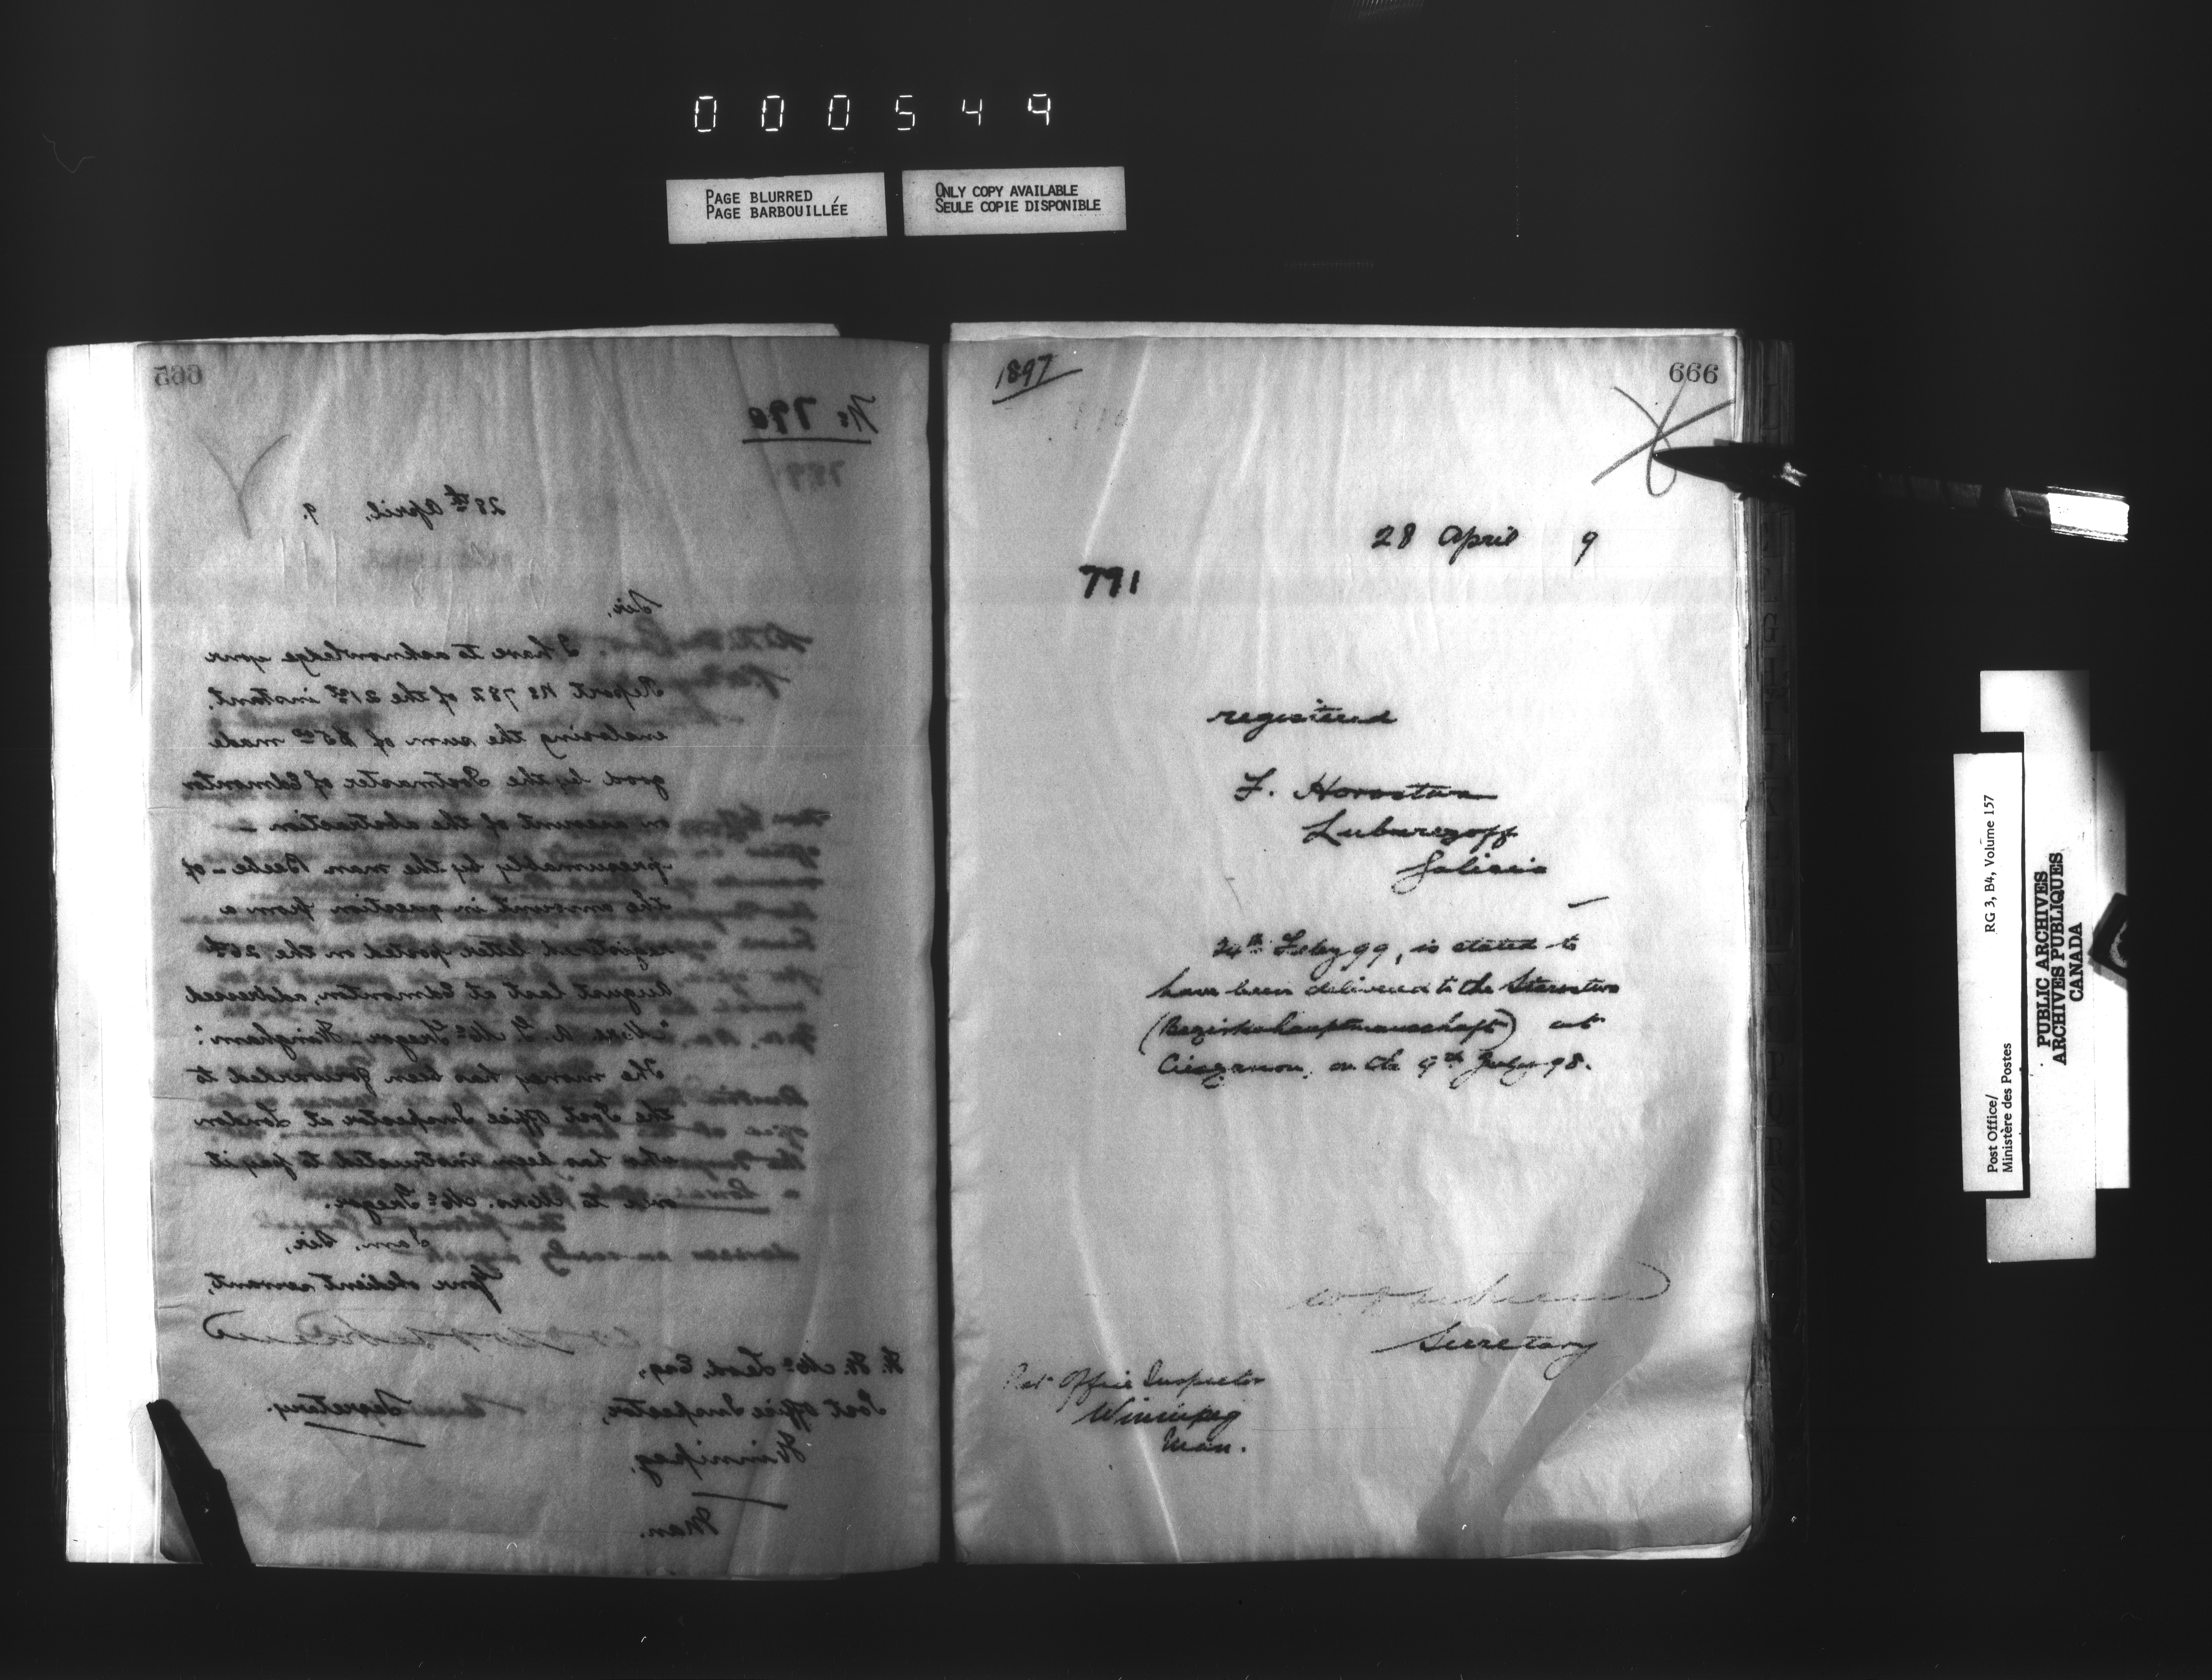 000549
PAGE BLURRED
PAGE BARBOUILLÉE
ONLY COPY AVAILABLE
SEULE COPIE DISPONIBLE
665
No 790
789
28th April, 9.
Sir,
I have to acknowledge your
Report No 782 of the 21st instant,
enclosing the sum of $5.00 made
good by the Postmaster of Edmonton
on account of the abstraction -
presumably by the man Beebe - of
the amount in question from a
registered letter posted on the 26th
August last at Edmonton, addressed
"Mrs. A. G. McGregor, Wingham".
The money has been forwarded to
the Post Office Inspector at London
who has been instructed to pay it
over to Mrs. McGregor.
I am, Sir,
Your obedient servant,
Secretary.
W. W. McLeod, Esq,
Post Office Inspector,
Winnipeg,
Man.
1897
666
28 April 9
791
registered
F.
Galicia
24th Feby 99, is stated to
have been delivered to the Starostwo
(Bezirkshauptmannschaft) at
on the 9th July 98.
Secretary
Post Office Inspector
Winnipeg
Man.
Post Office/
Ministère des Postes
RG 3, B4, Volume 157
PUBLIC ARCHIVES
ARCHIVES PUBLIQUES
CANADA